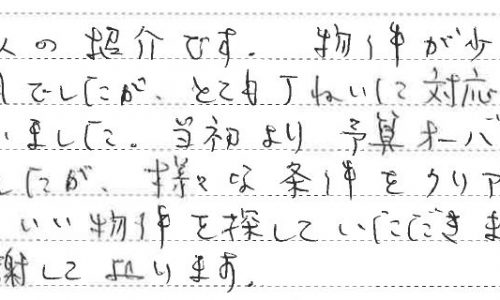 人の紹介です。 物件が少
月でしたが、とても丁ねいに対応
いました。当初より 予算オーバ
したが、様々な条件をクリア
いい物件を探していただきま
謝しております。